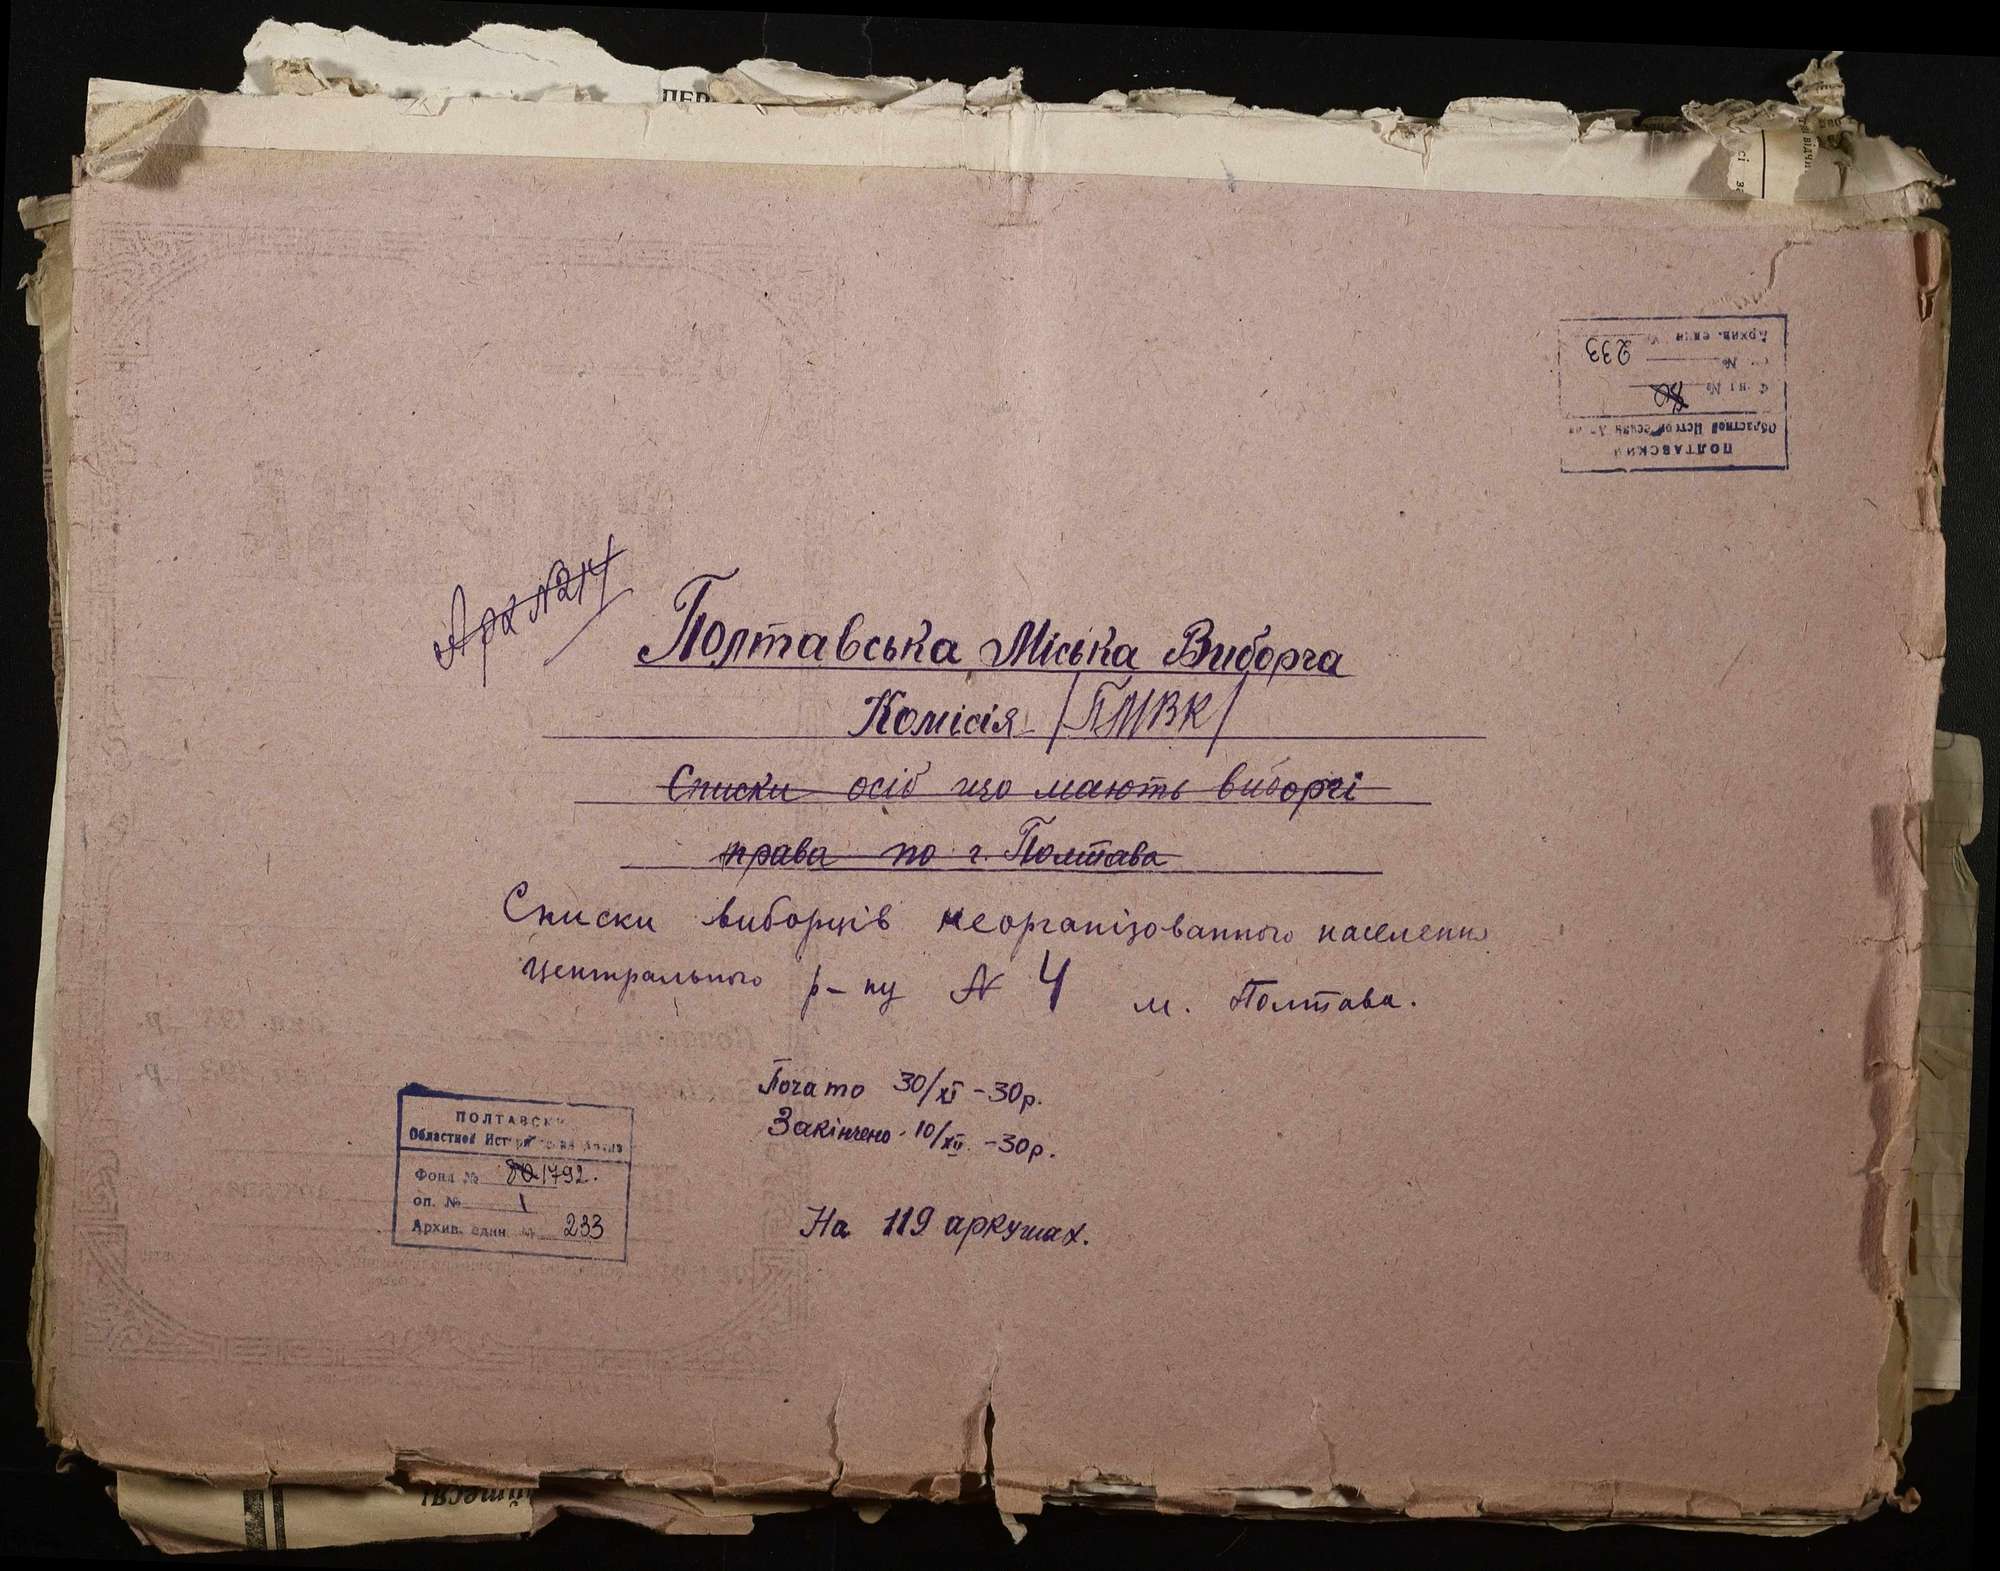 ПЕР
Арх №214
Полтавська Міська Виборча
Комісія /ПМВК/
Списки осіб що мають виборчі
права по г. Полтава
Списки виборців неорганізованного населення
Центрального р-ну № 4 м. Полтава.
Почато 30/XI -30р.
Закінчено 10/XII -30р.
На 119 аркушах.
ПОЛТАВСКИ
Областной
Фонд № 80 1792.
оп. № 1
Архив. един № 233
ПОЛТАВСКИЙ
Областной
№ 80
№
Архив. един 233